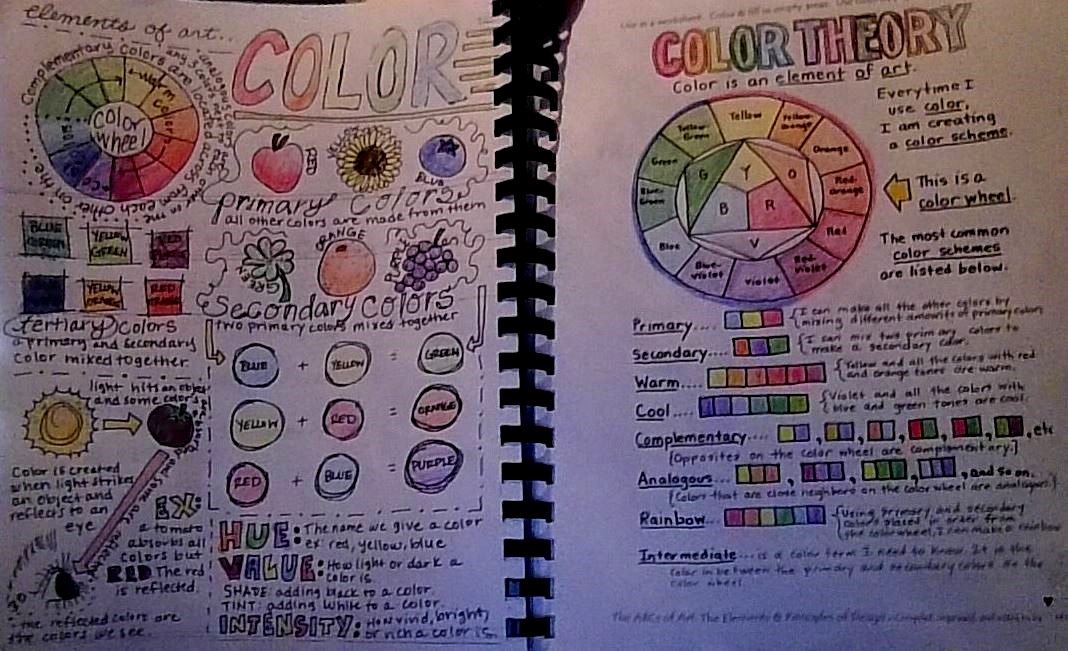 elements of art...
COLOR
Complementary colors are located across from each other on the
analogous
any 3 colors next to
warm colors
cool
color
wheel
RED
BLUE
primary colors
all other colors are made from them
GREEN
ORANGE
PURPLE
secondary colors
two primary colors mixed together
BLUE
GREEN
YELLOW
GREEN
RED
YELLOW
ORANGE
RED
ORANGE
tertiary colors
a primary and secondary
color mixed together
BLUE + YELLOW = GREEN
YELLOW + RED = ORANGE
RED + BLUE = PURPLE
light hits an object
and some colors
are absorbed
and some are
Color is created
when light strikes
an object and
reflects to an
eye
EX:
a tomato
absorbs all
colors but
RED. The red
is reflected.
the reflected colors are
the colors we see.
HUE: The name we give a color
ex: red, yellow, blue
VALUE: How light or dark a
color is.
SHADE: adding black to a color.
TINT: adding white to a color.
INTENSITY: How vivid, bright,
or rich a color is.
COLOR THEORY
Color is an element of art.
Everytime I
use color,
I am creating
a color scheme.
This is a
color wheel.
The most common
color schemes
are listed below.
Yellow
Yellow-Orange
Orange
Red-Orange
Red
Red-Violet
Violet
Blue-Violet
Blue
Blue-Green
Green
Yellow Green
Y
O
R
V
B
G
Primary.... {I can make all the other colors by
mixing different amounts of primary colors
Secondary.... {I can mix two primary colors to
make a secondary color.
Warm.... {Yellow and all the colors with red
and orange tones are warm.
Cool.... {Violet and all the colors with
blue and green tones are cool.
Complementary.... , , , , , , etc
[Opposites on the color wheel are complementary.]
Analogous... , , , , and so on.
{Colors that are close neighbors on the color wheel are analogous.}
Rainbow... {Using primary and secondary
colors placed in order from
the color wheel, I can make a rainbow
Intermediate... is a color term I need to know. It is the
color in between the primary and secondary colors on the
color wheel.
The ABCs of Art: The Elements & Principles of Design